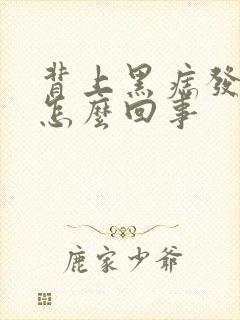 背上黑痣發
怎麼回事
鹿家少爺